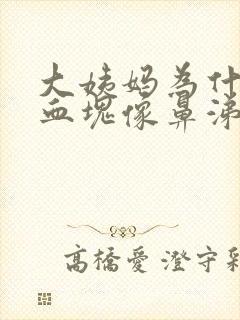 大姨妈為什
血塊像鼻涕
高橋愛 澄守彩